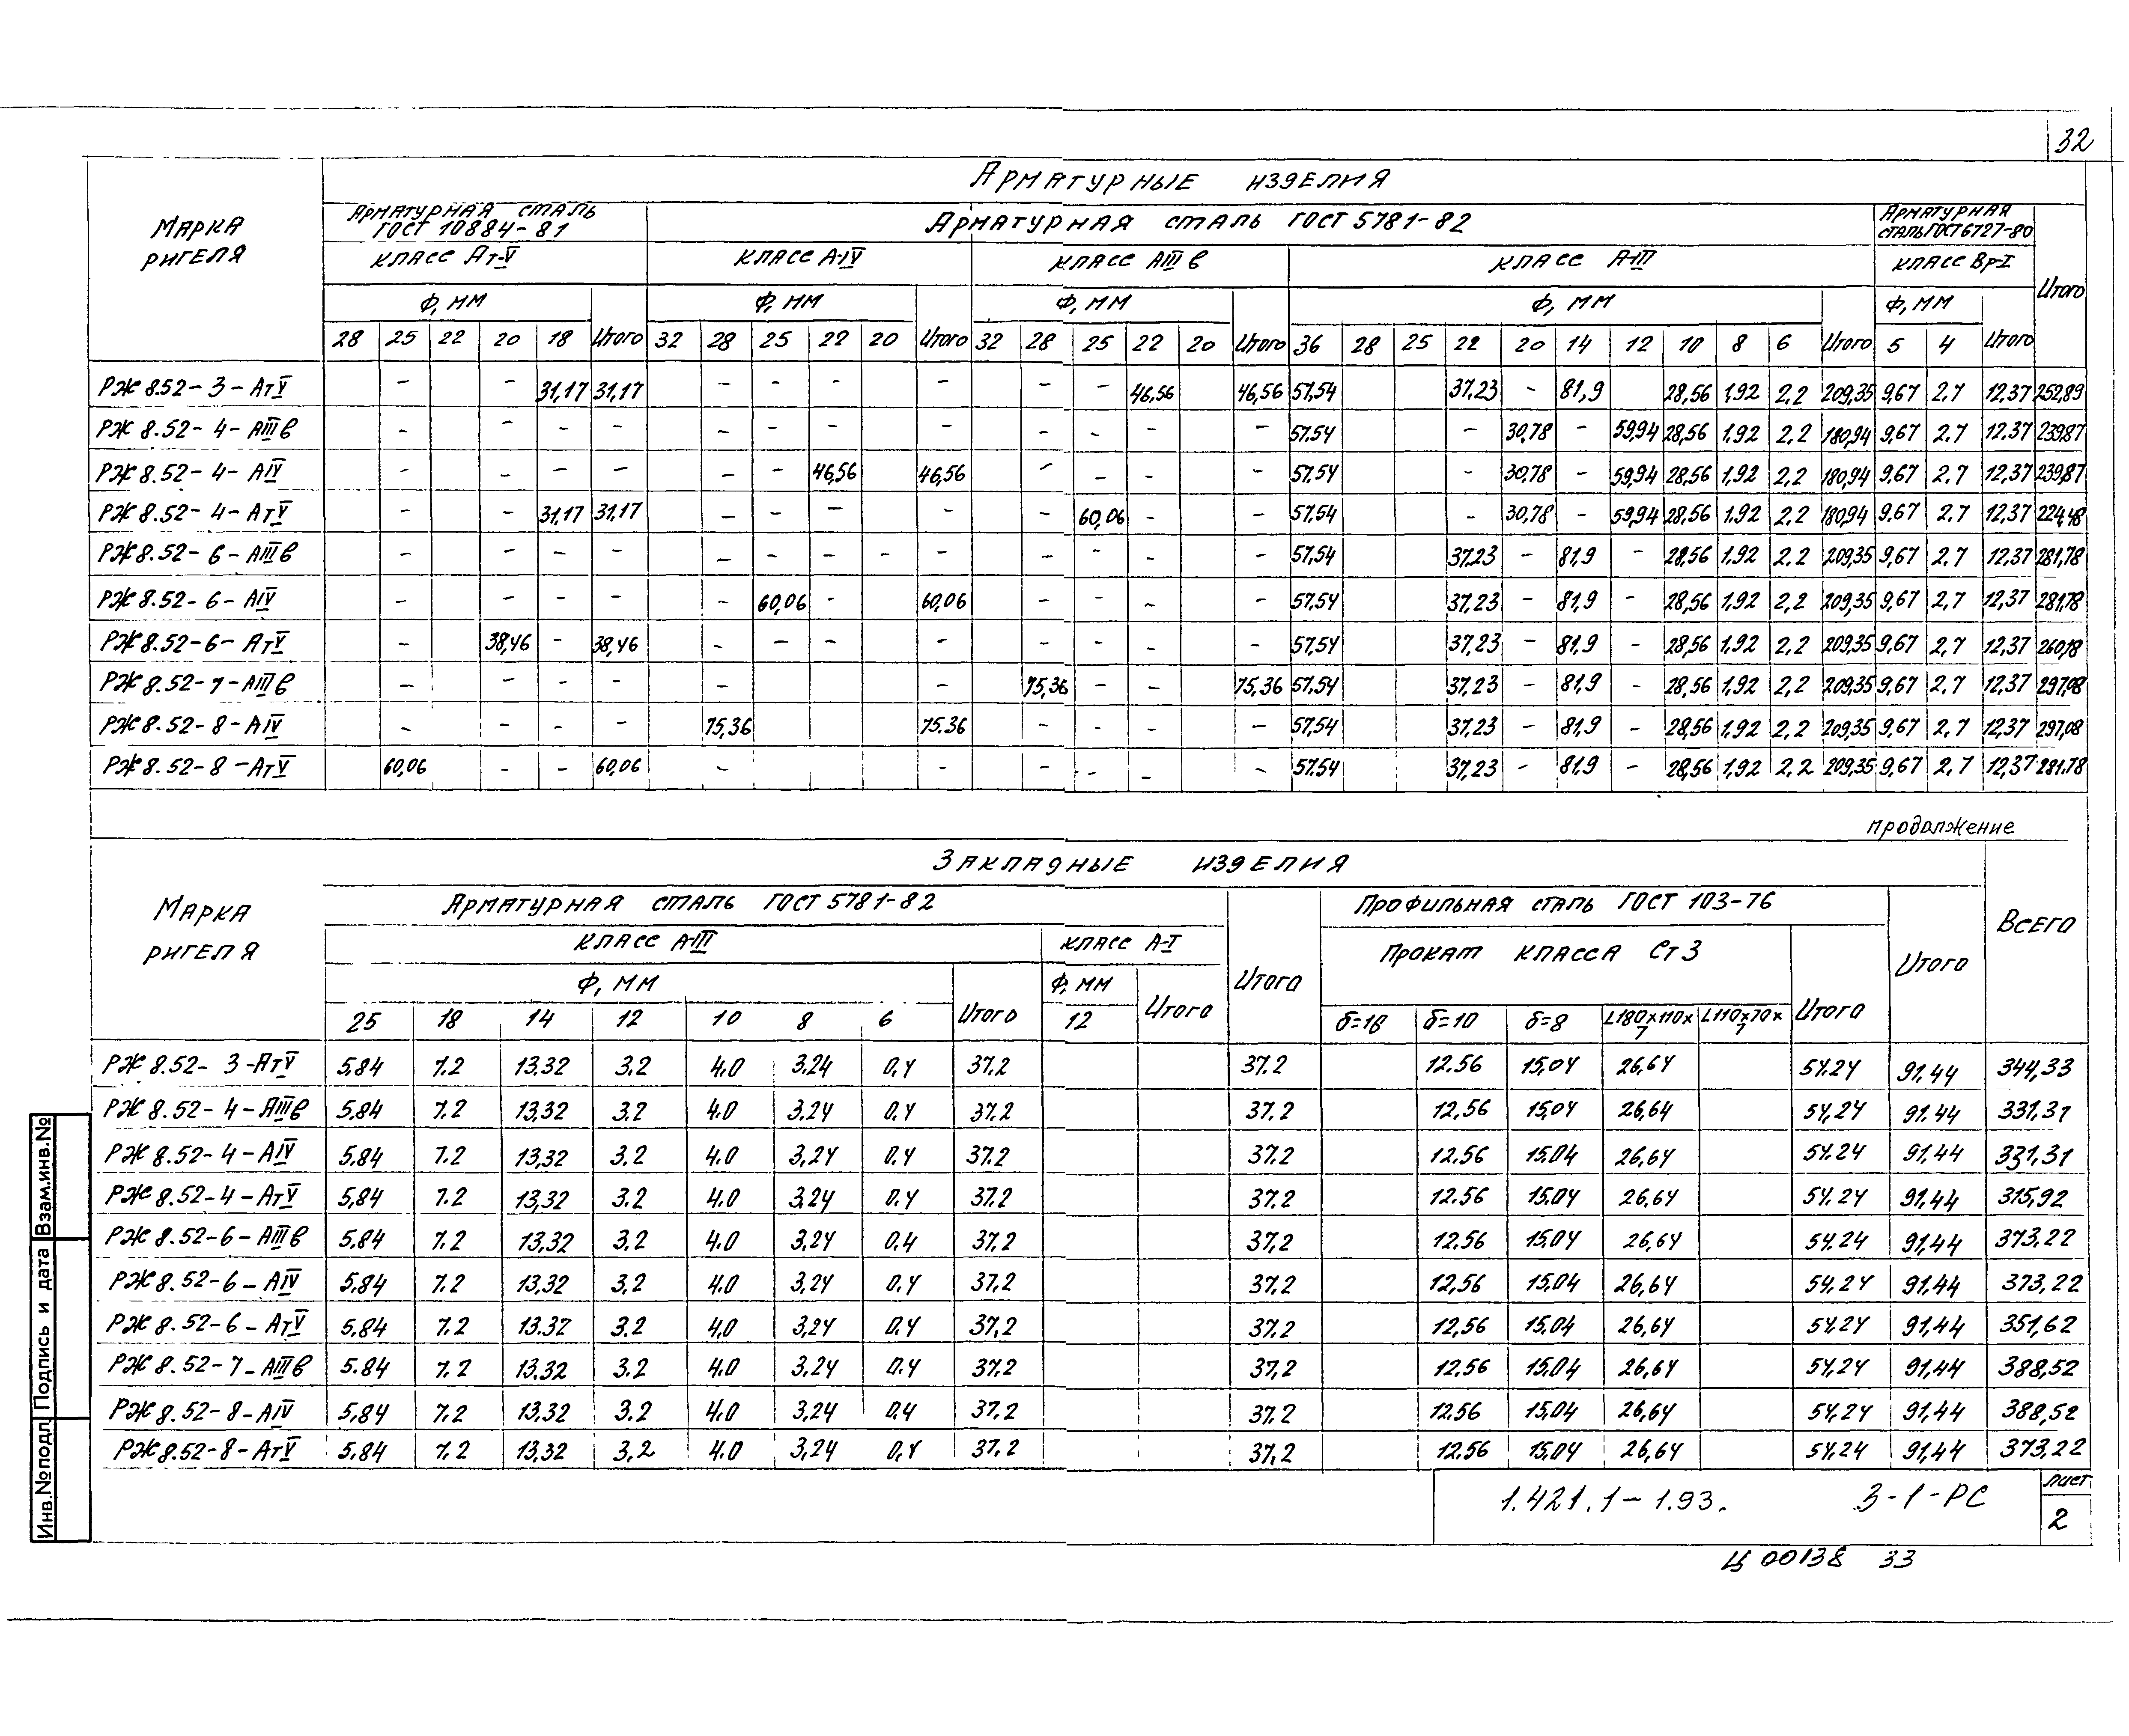 32
Арматурные изделия
Марка ригеля
Арматурная сталь ГОСТ 10884-81
Арматурная сталь ГОСТ 5781-82
Арматурная сталь ГОСТ 6727-80
Итого
класс Ат-V
класс А-IV
класс АIIIв
класс А-III
класс Вр-I
Ф, мм Ф, мм Ф, мм Ф, мм Ф, мм
28 25 22 20 18 Итого 32 28 25 22 20 Итого 32 28 25 22 20 Итого 36 28 25 22 20 14 12 10 8 6 Итого 5 4 Итого
РЖ 8.52-3-АтV – – 31,17 31,17 – – – – – – 46,56 46,56 57,54 37,23 – 81,9 28,56 1,92 2,2 209,35 9,67 2,7 12,37 252,89
РЖ 8.52-4-АIIIв – – – – – – – – – – – – 57,54 – 30,78 – 59,94 28,56 1,92 2,2 180,94 9,67 2,7 12,37 239,87
РЖ 8.52-4-АIV – – – – – – 46,56 46,56 – – – – 57,54 – 30,78 – 59,94 28,56 1,92 2,2 180,94 9,67 2,7 12,37 239,87
РЖ 8.52-4-АтV – – 31,17 31,17 – – – – – 60,06 – – 57,54 – 30,78 – 59,94 28,56 1,92 2,2 180,94 9,67 2,7 12,37 224,48
РЖ 8.52-6-АIIIв – – – – – – – – – – – – – 57,54 37,23 – 81,9 – 28,56 1,92 2,2 209,35 9,67 2,7 12,37 281,78
РЖ 8.52-6-АIV – – – – – 60,06 – 60,06 – – – – 57,54 37,23 – 81,9 – 28,56 1,92 2,2 209,35 9,67 2,7 12,37 281,78
РЖ 8.52-6-АтV – 38,46 – 38,46 – – – – – – – – 57,54 37,23 – 81,9 – 28,56 1,92 2,2 209,35 9,67 2,7 12,37 260,18
РЖ 8.52-7-АIIIв – – – – – 75,36 – – 75,36 57,54 37,23 – 81,9 – 28,56 1,92 2,2 209,35 9,67 2,7 12,37 297,08
РЖ 8.52-8-АIV – – – – 75,36 75.36 – – – – 57,54 37,23 – 81,9 – 28,56 1,92 2,2 209,35 9,67 2,7 12,37 297,08
РЖ 8.52-8-АтV 60,06 – – 60,06 – – – – – – 57.54 37,23 – 81,9 – 28,56 1,92 2,2 209,35 9,67 2,7 12,37 281.78
продолжение
Закладные изделия
Марка ригеля
Арматурная сталь ГОСТ 5781-82
Итого
Профильная сталь ГОСТ 103-76
Итого
Всего
класс А-III
класс А-I
Прокат класса Ст 3
Ф, мм Ф, мм
25 18 14 12 10 8 6 Итого 12 Итого δ=16 δ=10 δ=8 L180х110х7 L110х70х7 Итого
РЖ 8.52-3-АтV 5,84 7.2 13.32 3.2 4.0 3,24 0,4 37.2 37.2 12.56 15,04 26,64 54.24 91,44 344,33
РЖ 8.52-4-АIIIв 5.84 7.2 13,32 3.2 4.0 3,24 0.4 37.2 37.2 12,56 15,04 26,64 54,24 91.44 331,31
РЖ 8.52-4-АIV 5.84 7.2 13,32 3.2 4.0 3,24 0.4 37.2 37.2 12.56 15.04 26,64 54.24 91,44 331,31
РЖ 8.52-4-АтV 5,84 7.2 13,32 3.2 4.0 3,24 0.4 37.2 37.2 12.56 15.04 26,64 54.24 91.44 315,92
РЖ 8.52-6-АIIIв 5.84 7.2 13,32 3.2 4.0 3,24 0.4 37.2 37,2 12.56 15,04 26,64 54.24 91,44 373.22
РЖ 8.52-6-АIV 5,84 7.2 13,32 3.2 4.0 3,24 0.4 37.2 37.2 12,56 15,04 26,64 54,24 91,44 373,22
РЖ 8.52-6-АтV 5.84 7.2 13.32 3.2 4.0 3,24 0.4 37,2 37.2 12,56 15,04 26,64 54.24 91,44 351,62
РЖ 8.52-7-АIIIв 5.84 7.2 13.32 3.2 4.0 3,24 0.4 37.2 37,2 12,56 15,04 26,64 54,24 91,44 388,52
РЖ 8.52-8-АIV 5,84 7.2 13.32 3.2 4.0 3,24 0.4 37.2 37.2 12.56 15,04 26,64 54,24 91,44 388,52
РЖ 8.52-8-АтV 5.84 7.2 13,32 3,2 4.0 3,24 0,4 37.2 37,2 12.56 15,04 26,64 54.24 91,44 373,22
1.421.1-1.93. 3-1-РС
лист
2
Ц 00138 33
Инв.№подл. Подпись и дата Взам.инв.№